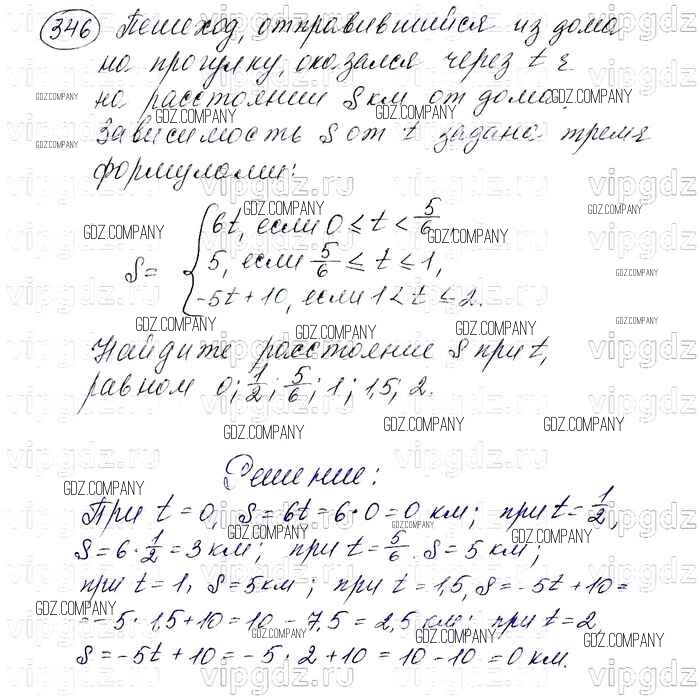 346 Пешеход, отправившийся из дома
на прогулку, оказался через t ч
на расстоянии S км от дома.
Зависимость S от t задана тремя
формулами:
6t, если 0 ≤ t < 5/6,
S = { 5, если 5/6 ≤ t ≤ 1,
-5t + 10, если 1 < t ≤ 2.
Найдите расстояние S при t,
равном 0; 1/2; 5/6; 1; 1,5; 2.
Решение:
При t = 0, S = 6t = 6·0 = 0 км; при t = 1/2,
S = 6·1/2 = 3 км; при t = 5/6 S = 5 км;
при t = 1, S = 5 км; при t = 1,5, S = -5t + 10 =
= -5·1,5 + 10 = 10 - 7,5 = 2,5 км; при t = 2,
S = -5t + 10 = -5·2 + 10 = 10 - 10 = 0 км.
GDZ.COMPANY
vipgdz.ru